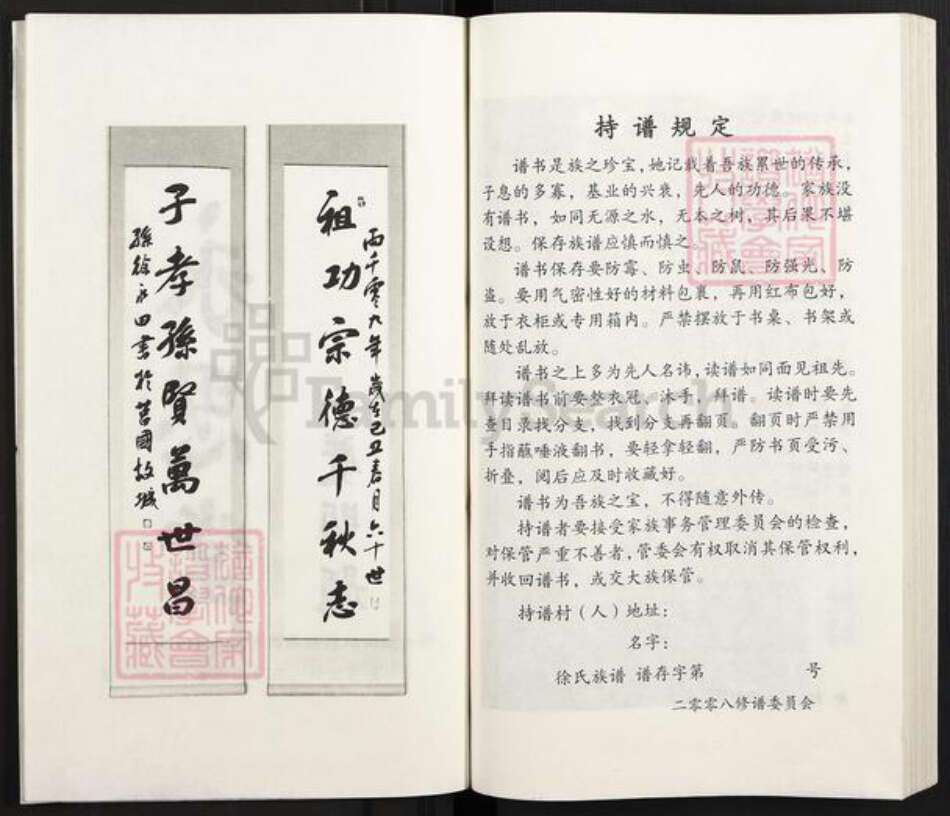 祖功宗德千秋志
両千零九年歲在己丑春月六十世
子孝孫賢萬世昌
孫徐永田書於莒國故城
持谱规定
谱书是族之珍宝,她记载着吾族累世的传承,
子息的多寡，基业的兴衰，先人的功德。家族没
有谱书，如同无源之水，无本之树，其后果不堪
设想。保存族谱应慎而慎之。
谱书保存要防霉、防虫、防鼠、防强光、防
盗。要用气密性好的材料包裹，再用红布包好，
放于衣柜或专用箱内。严禁摆放于书桌、书架或
随处乱放。
谱书之上多为先人名讳,读谱如同面见祖先。
拜读谱书前要整衣冠，沐手，拜谱。读谱时要先
查目录找分支，找到分支再翻页。翻页时严禁用
手指蘸唾液翻书，要轻拿轻翻，严防书页受污、
折叠，阅后应及时收藏好。
谱书为吾族之宝，不得随意外传。
持谱者要接受家族事务管理委员会的检查，
对保管严重不善者,管委会有权取消其保管权利，
并收回谱书，或交大族保管。
持谱村（人）地址：
名字：
徐氏族谱 谱存字第 号
二零零八修谱委员会
FamilySearch